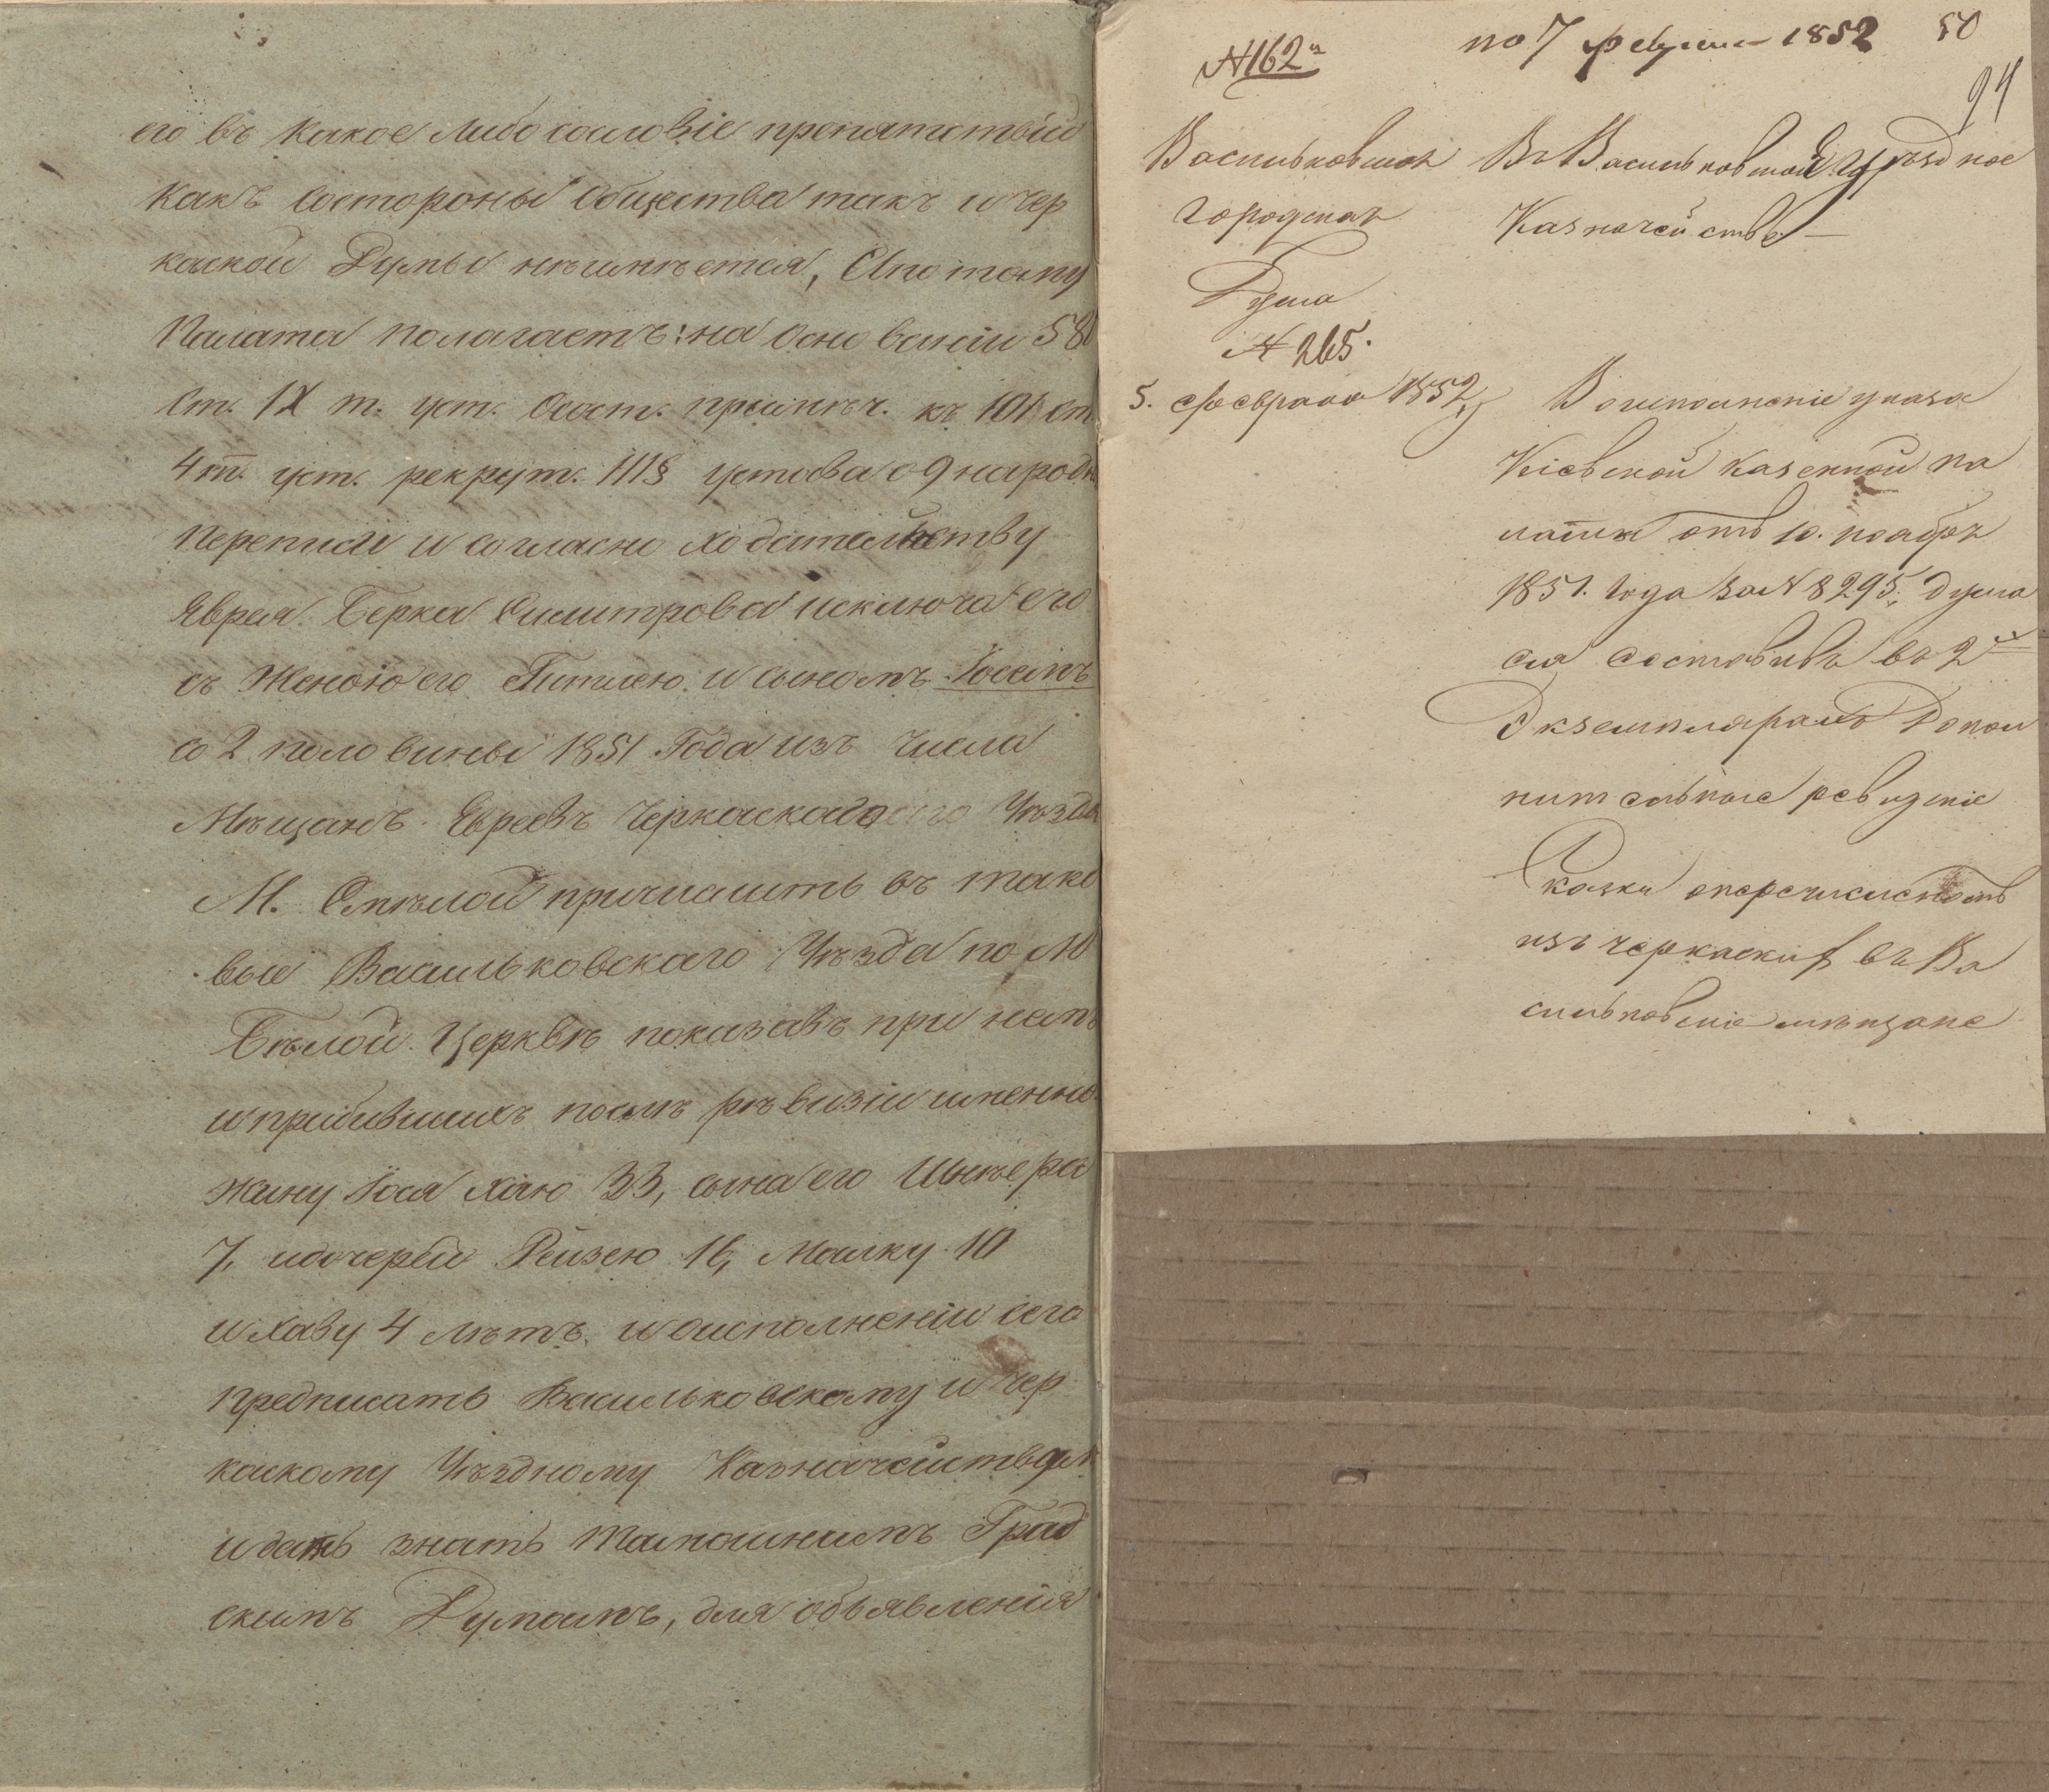 его въ какое либо сословіе препятствій
какъ состороны общества такъ и Чер
каской Думы неимѣется, Апотому
Палата полагаетъ: на основаніи 580
Ст. IX т. уст. Сост. примѣч. къ 101 ст
4 т. уст. рекрут. 111§ устава о 9 народн
переписи и согласно ходательству
Яврея Берка Силитрова исключа его
съ Женою его и сыномъ Іосемъ
со 2 половины 1851 Года изъ числа
Мѣщанъ Евреевъ Черкаскаго Уѣзда
М. Смѣлой причислить въ тако
вые Васильковскаго Уѣзда по М
Бѣлой Церквѣ показавъ при немъ
и прибившихъ послѣ рѣвизіи именно
жину Іося Хаю 33, сына его
7, идочерей Рейзею 16, Малку 10
и Хаву 4 лѣтъ. и оисполненіи сего
предписать Васильковскому и Чер
каскому Уѣздному Казначействамъ
и дать знать тамошнимъ Град
скимъ Думамъ, для объявленія
№ 162
по 7 февраля 1852
50
94
Васильковская
городская
Дума
№ 265.
5. февраля 1852
Въ Васильковское уѣздное
Казначейство
Во исполненіе указа
Кіевской казенной па
латы отъ 10. ноября
1851. года за № 8295, дума
сія составивъ въ 2
Экземплярахъ Допол
нительные ревизскіе
Сказки о перечисленномъ
изъ черкаскихъ въ Ва
сильковскіе мѣщане